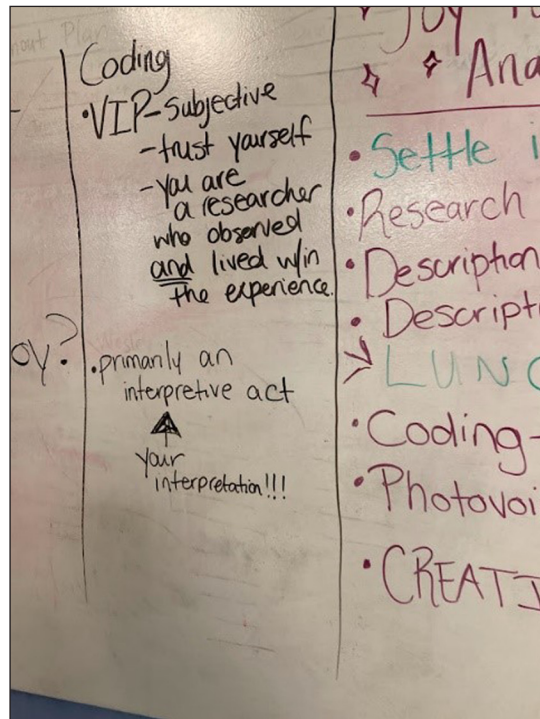 Coding
•VIP-subjective
-trust yourself
-you are
a researcher
who observed
and lived w/in
the experience.
•primarily an
interpretive act
your
interpretation!!!
oy?
Joy
Ana
•Settle i
•Research
•Description
•Descript
LUNC
•Coding-
•Photovoi
•CREATI